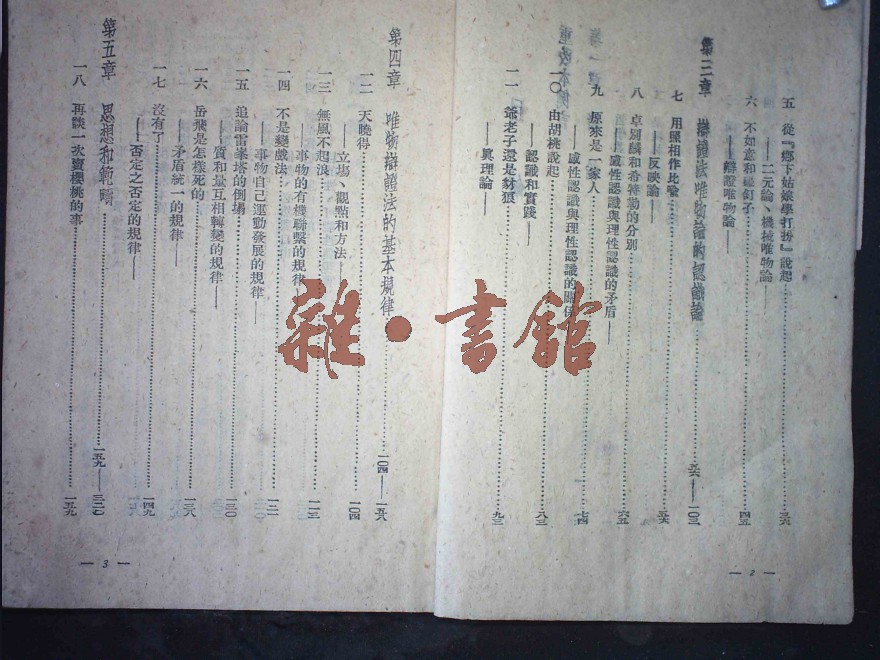 五 從『鄉下姑娘學打扮』說起……三六
——二元論、機械唯物論——
六 不如意和碰釘子……四五
——辯證唯物論——
第三章 辯證法唯物論的認識論……五六——一〇三
七 用照相作比喻……五六
——反映論——
八 卓別麟和希特勒的分別……六五
——感性認識與理性認識的矛盾——
九 原來是一家人……七四
——感性認識與理性認識的關係——
一〇 由胡桃說起……八三
——認識和實踐——
一一 爺老子還是豺狼……九三
——真理論——
— 2 —
第四章 唯物辯證法的基本規律……一〇四——一五八
一二 天曉得……一〇四
——立場、觀點和方法——
一三 無風不起浪……一一三
——事物的有機聯繫的規律——
一四 不是變戲法……一二一
——事物自己運動發展的規律——
一五 追論雷峯塔的倒塌……一三〇
——質和量互相轉變的規律——
一六 岳飛是怎樣死的……一三八
——矛盾統一的規律——
一七 沒有了……一四九
——否定之否定的規律——
第五章 思想和範疇……一五九——二二〇
一八 再談一次賣櫻桃的事……一五九
— 3 —
雜·書館